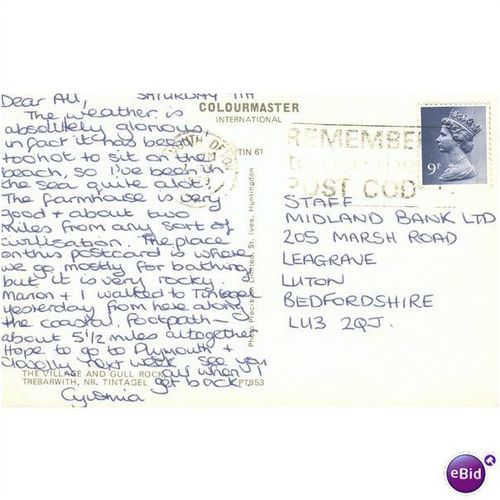 Dear All, SATURDAY 7TH
The weather is
absolutely glorious,
in fact it has been
too hot to sit on the
beach, so I've been in
the sea quite alot.
The farmhouse is very
good + about two
miles from any sort of
civilisation. The place
on this postcard is where
we go mostly for bathing
but it is very rocky.
Marion + I walked to Tintagel
yesterday from here along
the coastal footpath -
about 5½ miles altogether
Hope to go to Plymouth +
Clovelly next week. See you
all when I
get back,
Cynthia
THE VILLAGE AND GULL ROCK
TREBARWITH, NR. TINTAGEL
PT353
COLOURMASTER
INTERNATIONAL
TIN 61
Photo Precision Limited, St. Ives, Huntingdon
REMEMBER
POST CODE
9P
STAFF
MIDLAND BANK LTD
205 MARSH ROAD
LEAGRAVE
LUTON
BEDFORDSHIRE
LU3 2QJ.
eBid